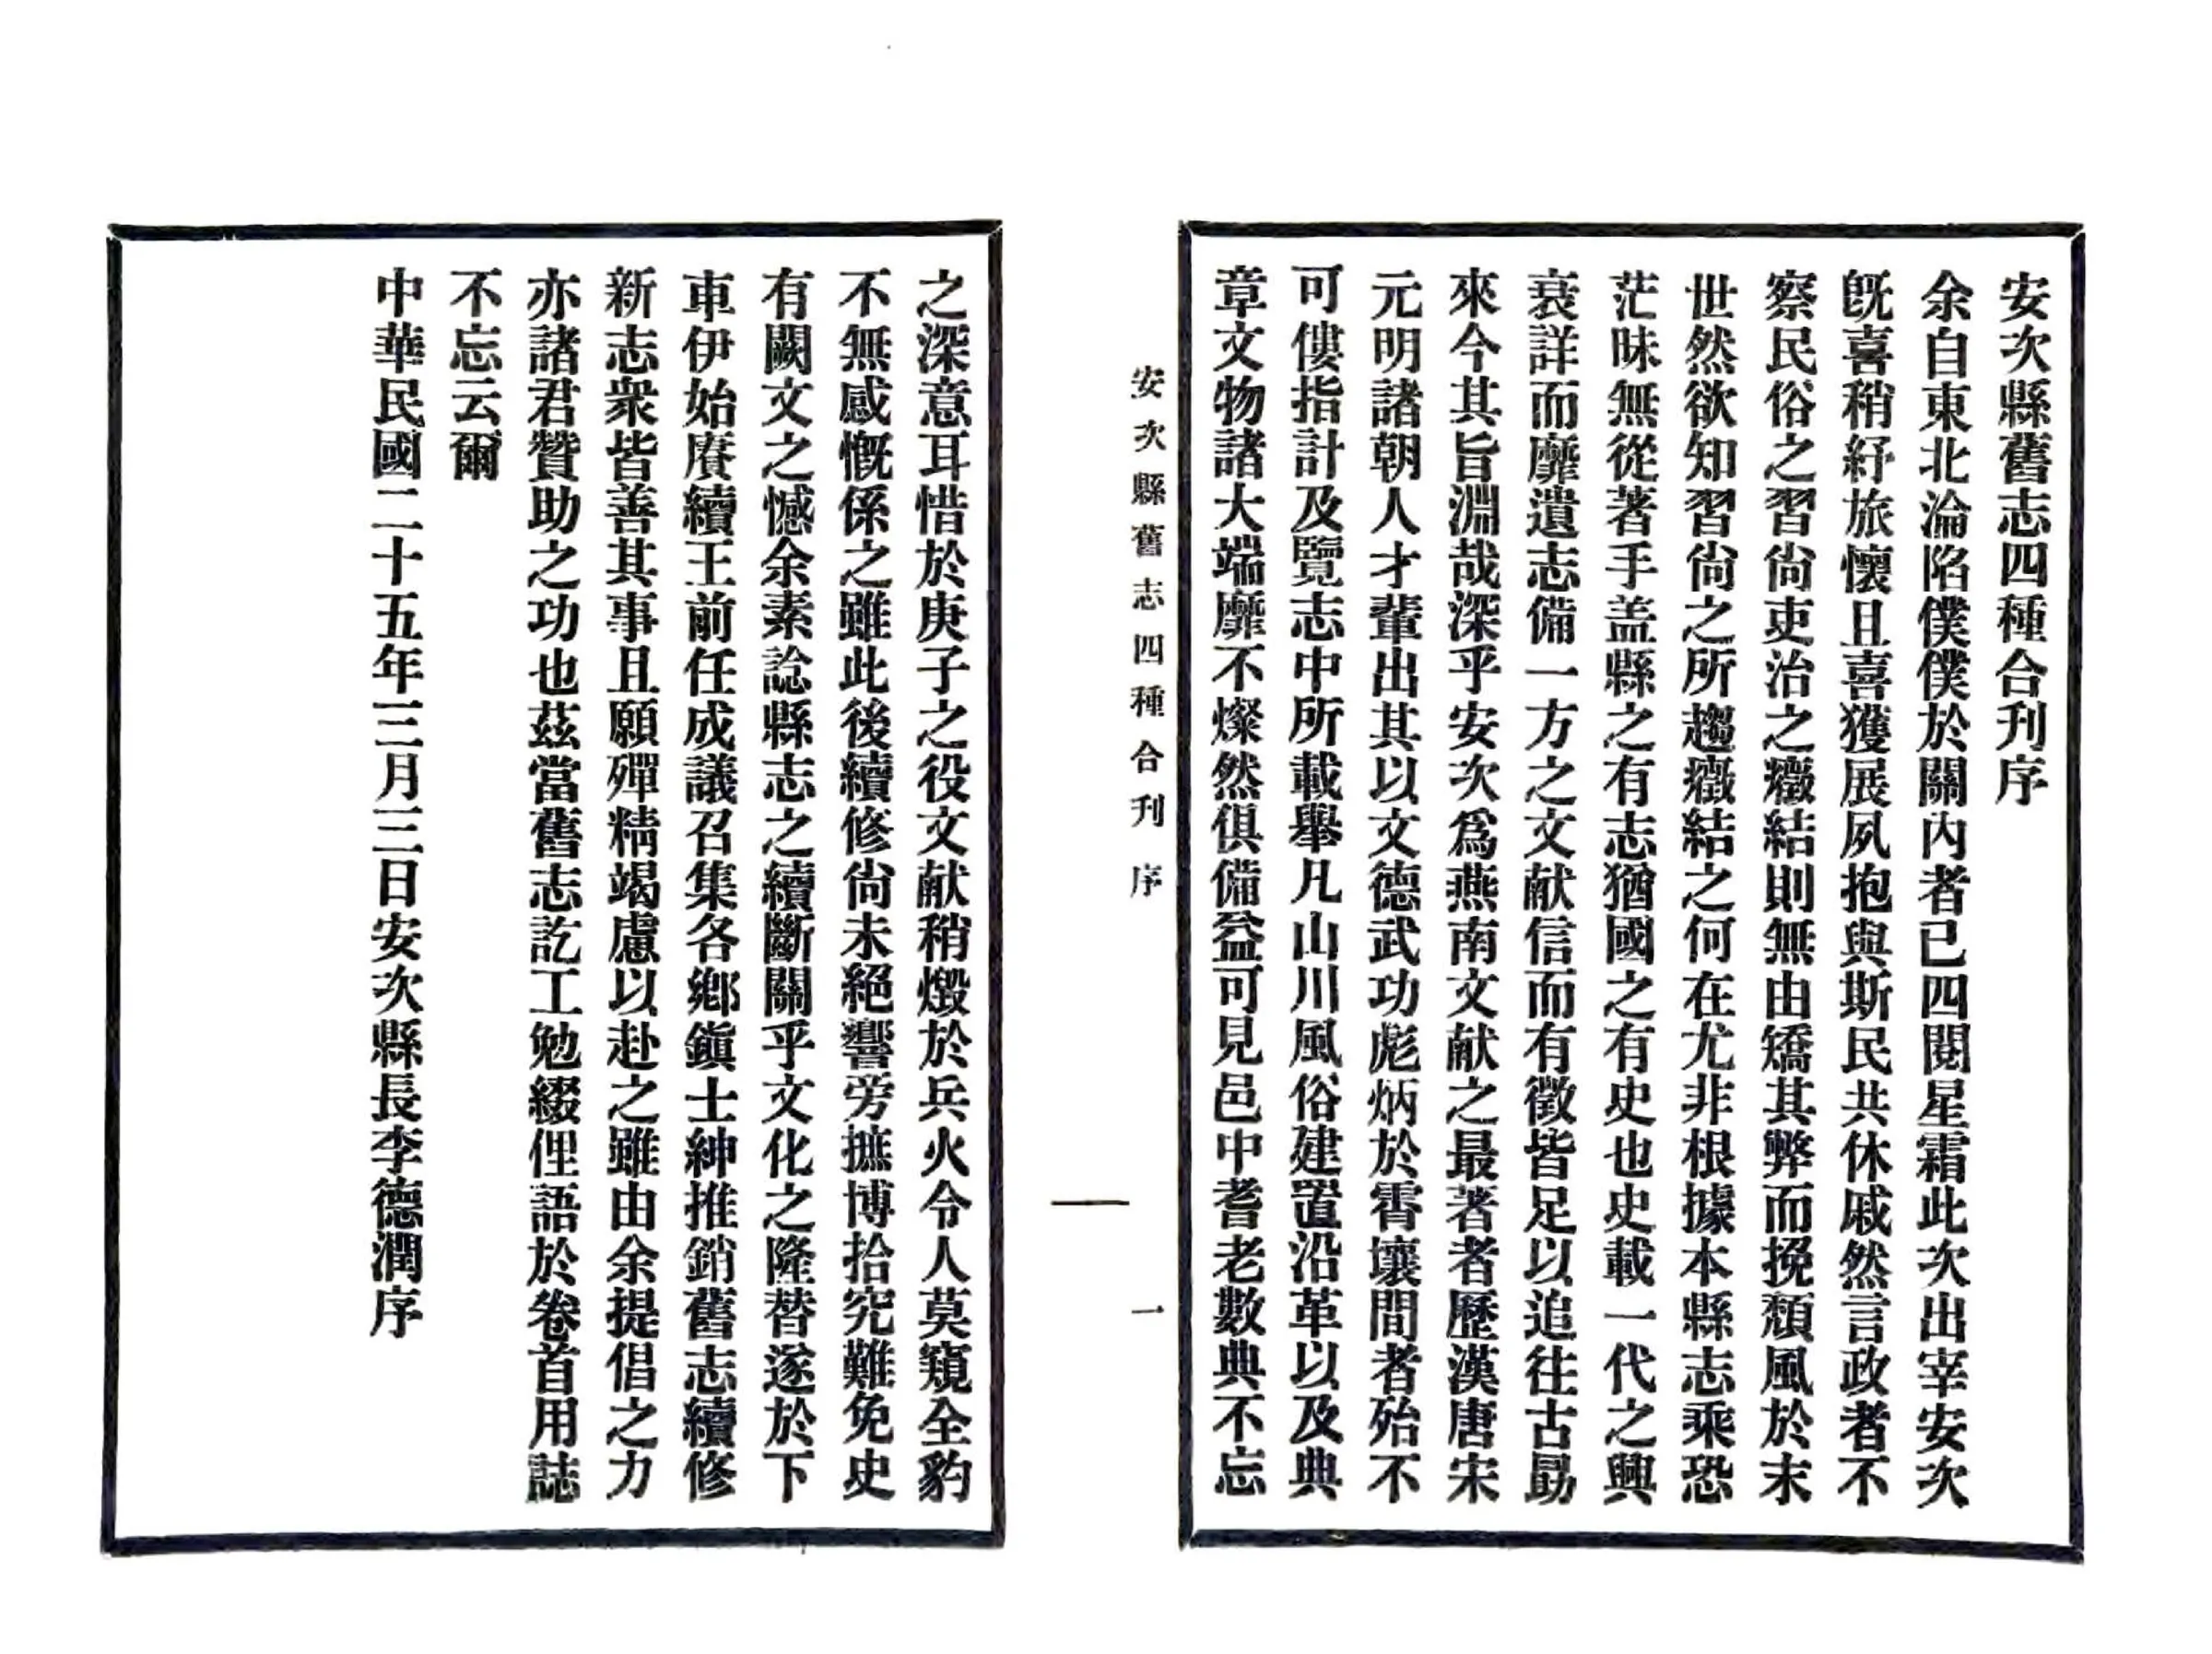 安次縣舊志四種合刊序
余自東北淪陷僕僕於關內者已四閱星霜此次出宰安次
旣喜稍紓旅懷且喜獲展夙抱與斯民共休戚然言政者不
察民俗之習尙吏治之癥結則無由矯其弊而挽頹風於末
世然欲知習尙之所趨癥結之何在尤非根據本縣志乘恐
茫昧無從著手盖縣之有志猶國之有史也史載一代之興
衰詳而靡遺志備一方之文献信而有徵皆足以追往古勗
來今其旨淵哉深乎安次爲燕南文献之最著者歷漢唐宋
元明諸朝人才輩出其以文德武功彪炳於霄壤間者殆不
可僂指計及覽志中所載舉凡山川風俗建置沿革以及典
章文物諸大端靡不燦然俱備益可見邑中耆老數典不忘
安次縣舊志四種合刊 序 一
之深意耳惜於庚子之役文献稍燬於兵火令人莫窺全豹
不無感慨係之雖此後續修尙未絕響旁摭博拾究難免史
有闕文之憾余素諗縣志之續斷關乎文化之隆替遂於下
車伊始賡續王前任成議召集各鄉鎭士紳推銷舊志續修
新志衆皆善其事且願殫精竭慮以赴之雖由余提倡之力
亦諸君贊助之功也茲當舊志訖工勉綴俚語於卷首用誌
不忘云爾
中華民國二十五年三月三日安次縣長李德潤序